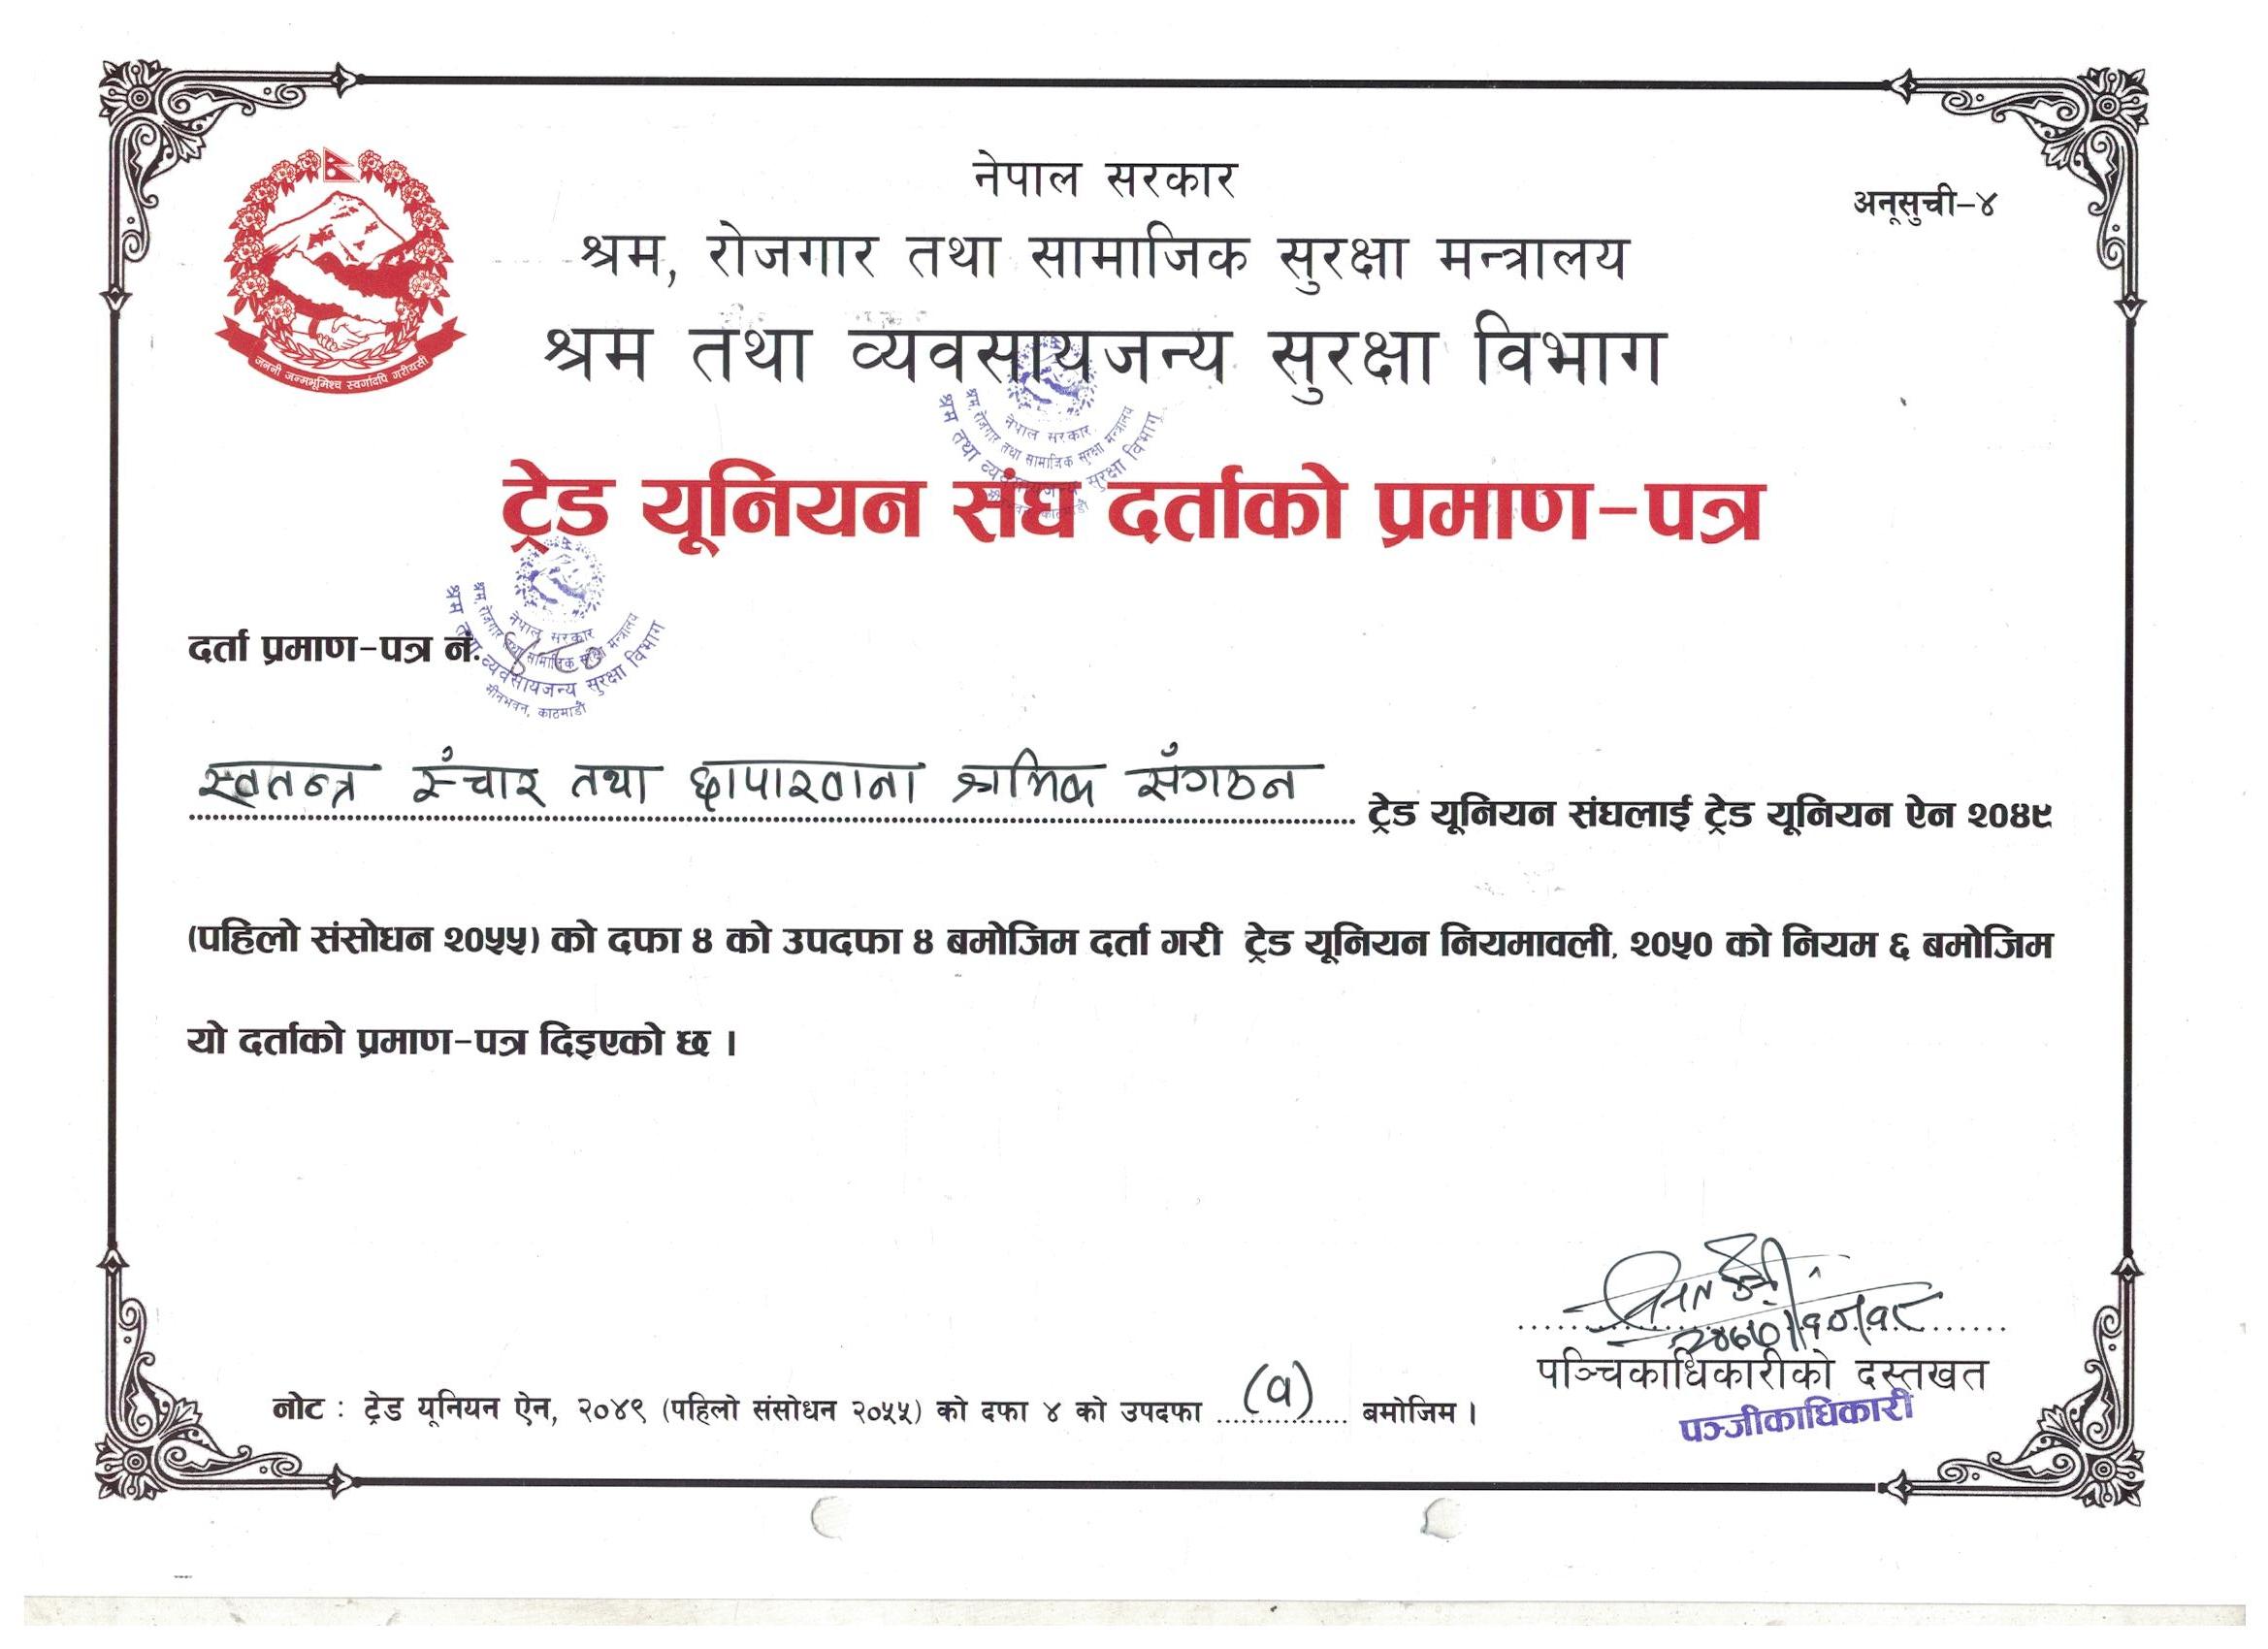 नेपाल सरकार
अनूसुची-४
श्रम, रोजगार तथा सामाजिक सुरक्षा मन्त्रालय
श्रम तथा व्यवसायजन्य सुरक्षा विभाग
जननी जन्मभूमिश्च स्वर्गादपि गरीयसी
नेपाल सरकार
श्रम, रोजगार तथा सामाजिक सुरक्षा मन्त्रालय
श्रम तथा व्यवसायजन्य सुरक्षा विभाग
ट्रेड यूनियन संघ दर्ताको प्रमाण-पत्र
नेपाल सरकार
श्रम, रोजगार तथा सामाजिक सुरक्षा मन्त्रालय
श्रम तथा व्यवसायजन्य सुरक्षा विभाग
मीनभवन, काठमाडौं
दर्ता प्रमाण-पत्र नं.
स्वतन्त्र संचार तथा छापाखाना श्रमिक सँगठन ट्रेड यूनियन संघलाई ट्रेड यूनियन ऐन २०४९
(पहिलो संसोधन २०५५) को दफा ४ को उपदफा ४ बमोजिम दर्ता गरी ट्रेड यूनियन नियमावली, २०५० को नियम ६ बमोजिम
यो दर्ताको प्रमाण-पत्र दिइएको छ ।
पञ्चिकाधिकारीको दस्तखत
पञ्जीकाधिकारी
नोट : ट्रेड यूनियन ऐन, २०४९ (पहिलो संसोधन २०५५) को दफा ४ को उपदफा (१) बमोजिम ।